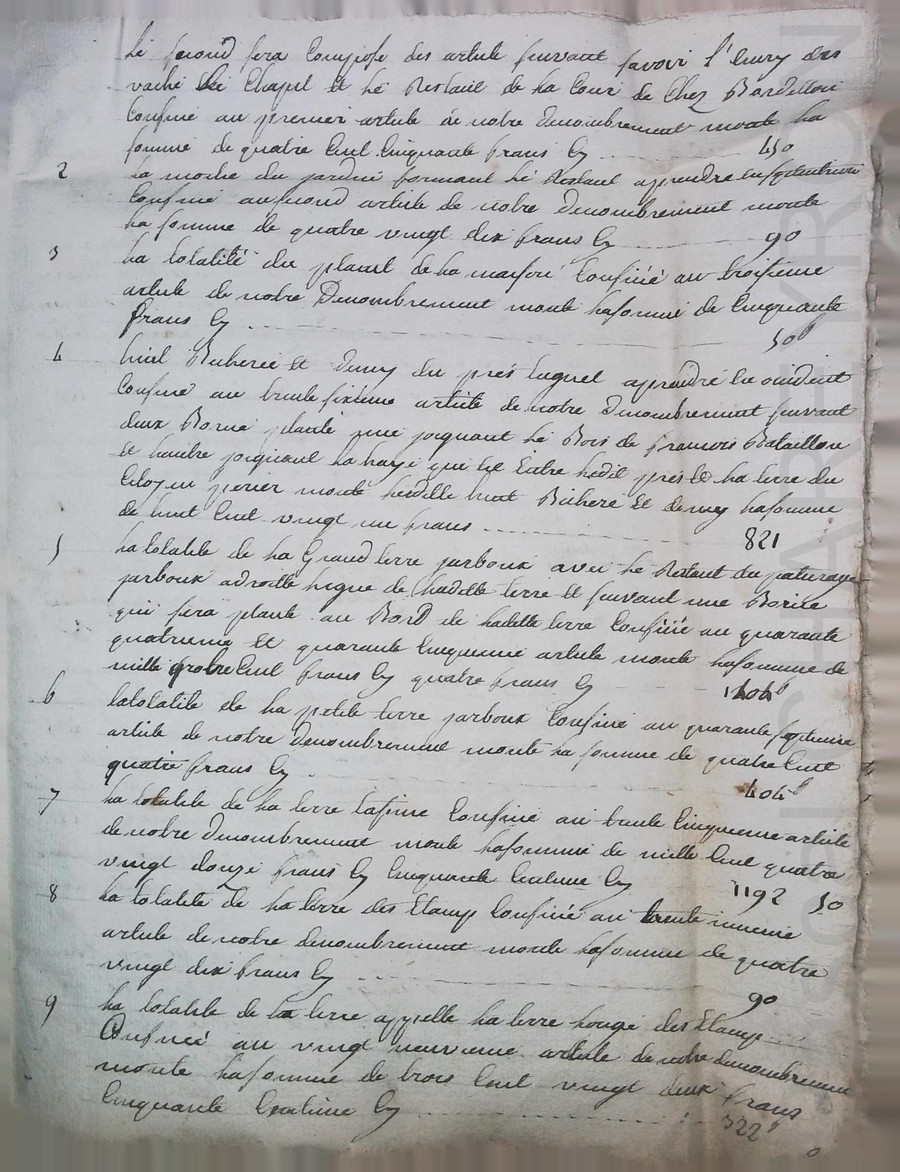 Le second sera Compose des article suivant savoir l'Ecury des
vache Le Chapit et Le Restant de La Cour de Chez Bardillon
Confiné au premier article de notre denombrement monte La
somme de quatre Cent Cinquante frans Cy 450
2 La moitie du jardin formant Le Restant aprendre en septentrion
Confiné au second article de notre denombrement monte
La somme de quatre vingt dix frans Cy 90
3 La totalité du plant de La maison Confiné au troisieme
article de notre Denombrement monte La somme de Cinquante
frans Cy 50
4 huit Bicheree et demy du prés Lequel aprendre en occident
Confiné au trente sixieme article de notre denombrement suivant
deux Borne planté une joignant Le Bois de francois Bataillon
et Lautre joignant La haye qui est Entre Ledit prés et La terre du
Citoyen monte Lesditte huit Bichere et demy La somme
de huit Cent vingt un frans 821
5 La totalite de La Grand terre jarboux avec Le Restant du paturage
jarboux a droitte Ligne de Laditte terre et suivant une Borne
qui sera plante au Bord de Laditte terre Confiné au quarante
quatrieme et quarante Cinquieme article monte La somme de
mille quatre Cent frans Cy quatre frans Cy 1404
6 La totalite de La petite terre jarboux Confiné au quarante septieme
article de notre denombrement monte La somme de quatre Cent
quatre frans Cy 404
7 La totalite de La terre Confiné au trente Cinquieme article
de notre denombrement monte La somme de mille Cent quatre
vingt douze frans Cy Cinquante Centime Cy 1192 50
8 La totalite de La terre des Etamp Confiné au trente article
article de notre denombrement monte La somme de quatre
vingt dix frans Cy 90
9 La totalite de La terre appelle La terre Longe des Etamp
Confiné au vingt neuvieme article de notre denombrement
monte La somme de trois Cent vingt deux frans
Cinquante Centime Cy 322